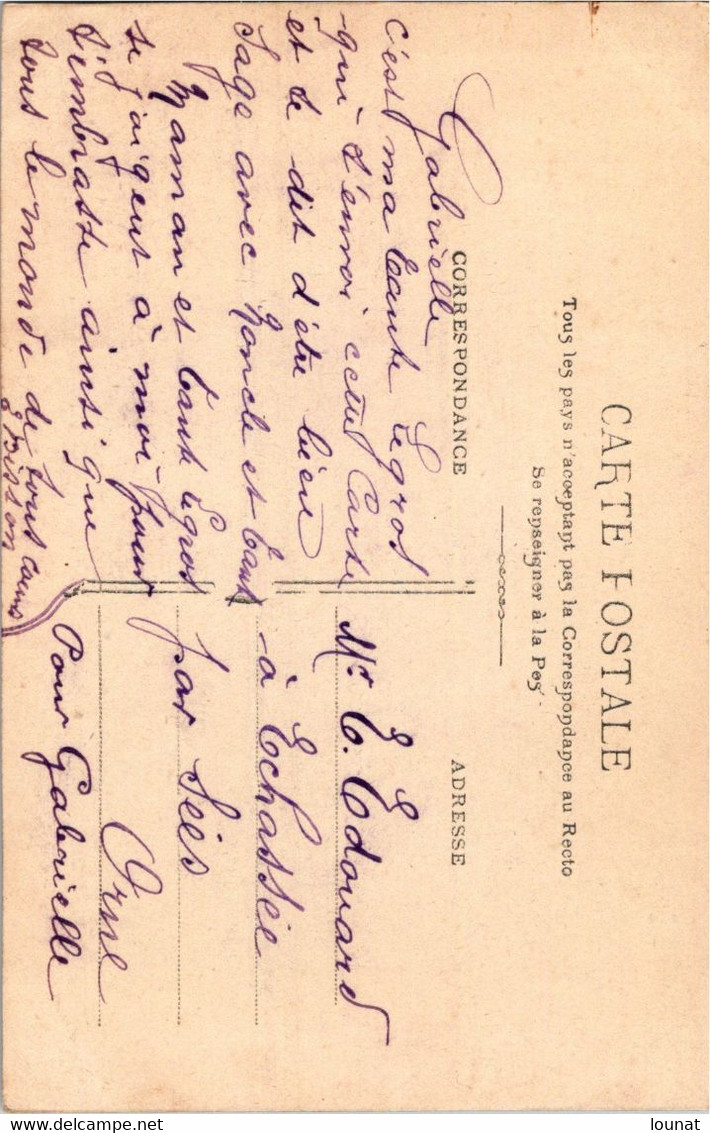 CARTE POSTALE
Tous les pays n'acceptant pas la Correspondance au Recto
Se renseigner à la Pos
CORRESPONDANCE
Gabrielle
c'est ma tante Legros
qui t'envoi cette Carte
et te dit d'être bien
sage avec Noncle et tante
Maman et tante Legros
se j'aigent à moi pour
t'embrasse ainsi que
tous le monde de tous cœurs
Bisson
ADRESSE
Mr E. Edouard
à Echassée
par Sées
Orne
Pour Gabrielle
lounat